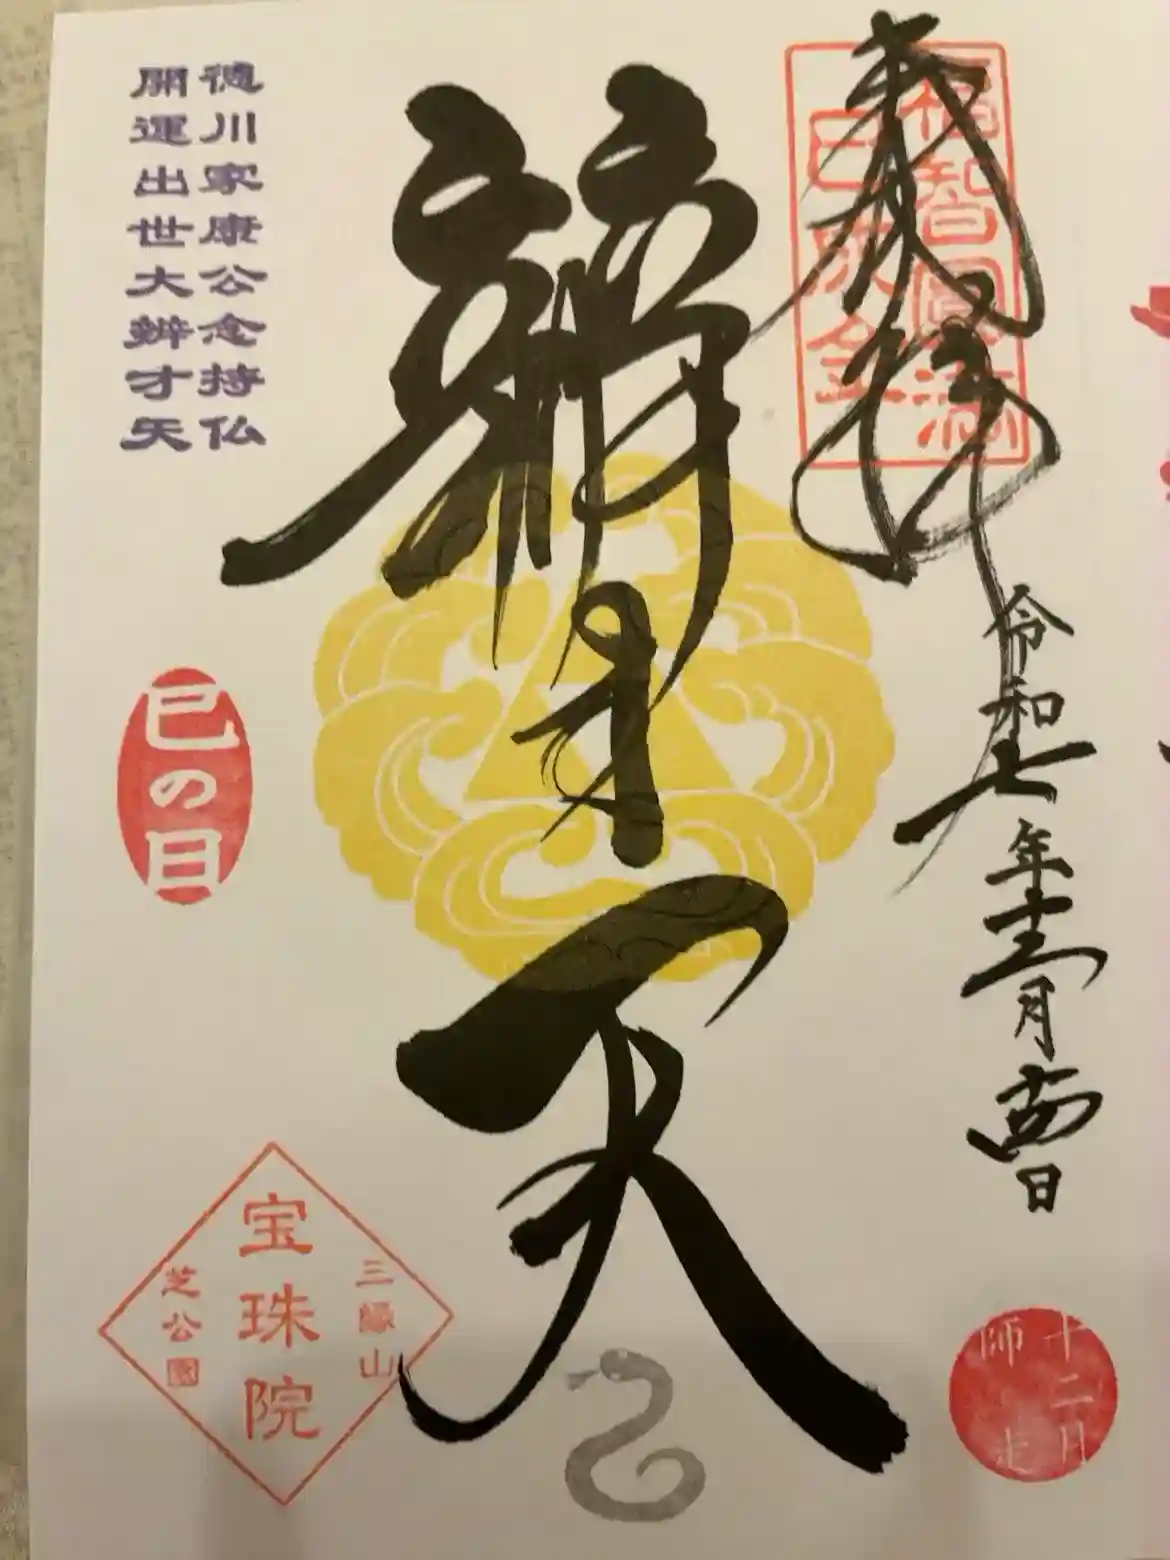 奉拝
福智圓満
巳成金
令和七年十二月 日
十二月
師走
辨才天
徳川家康公念持仏
開運出世大辨才天
巳の日
三縁山
宝珠院
芝公園